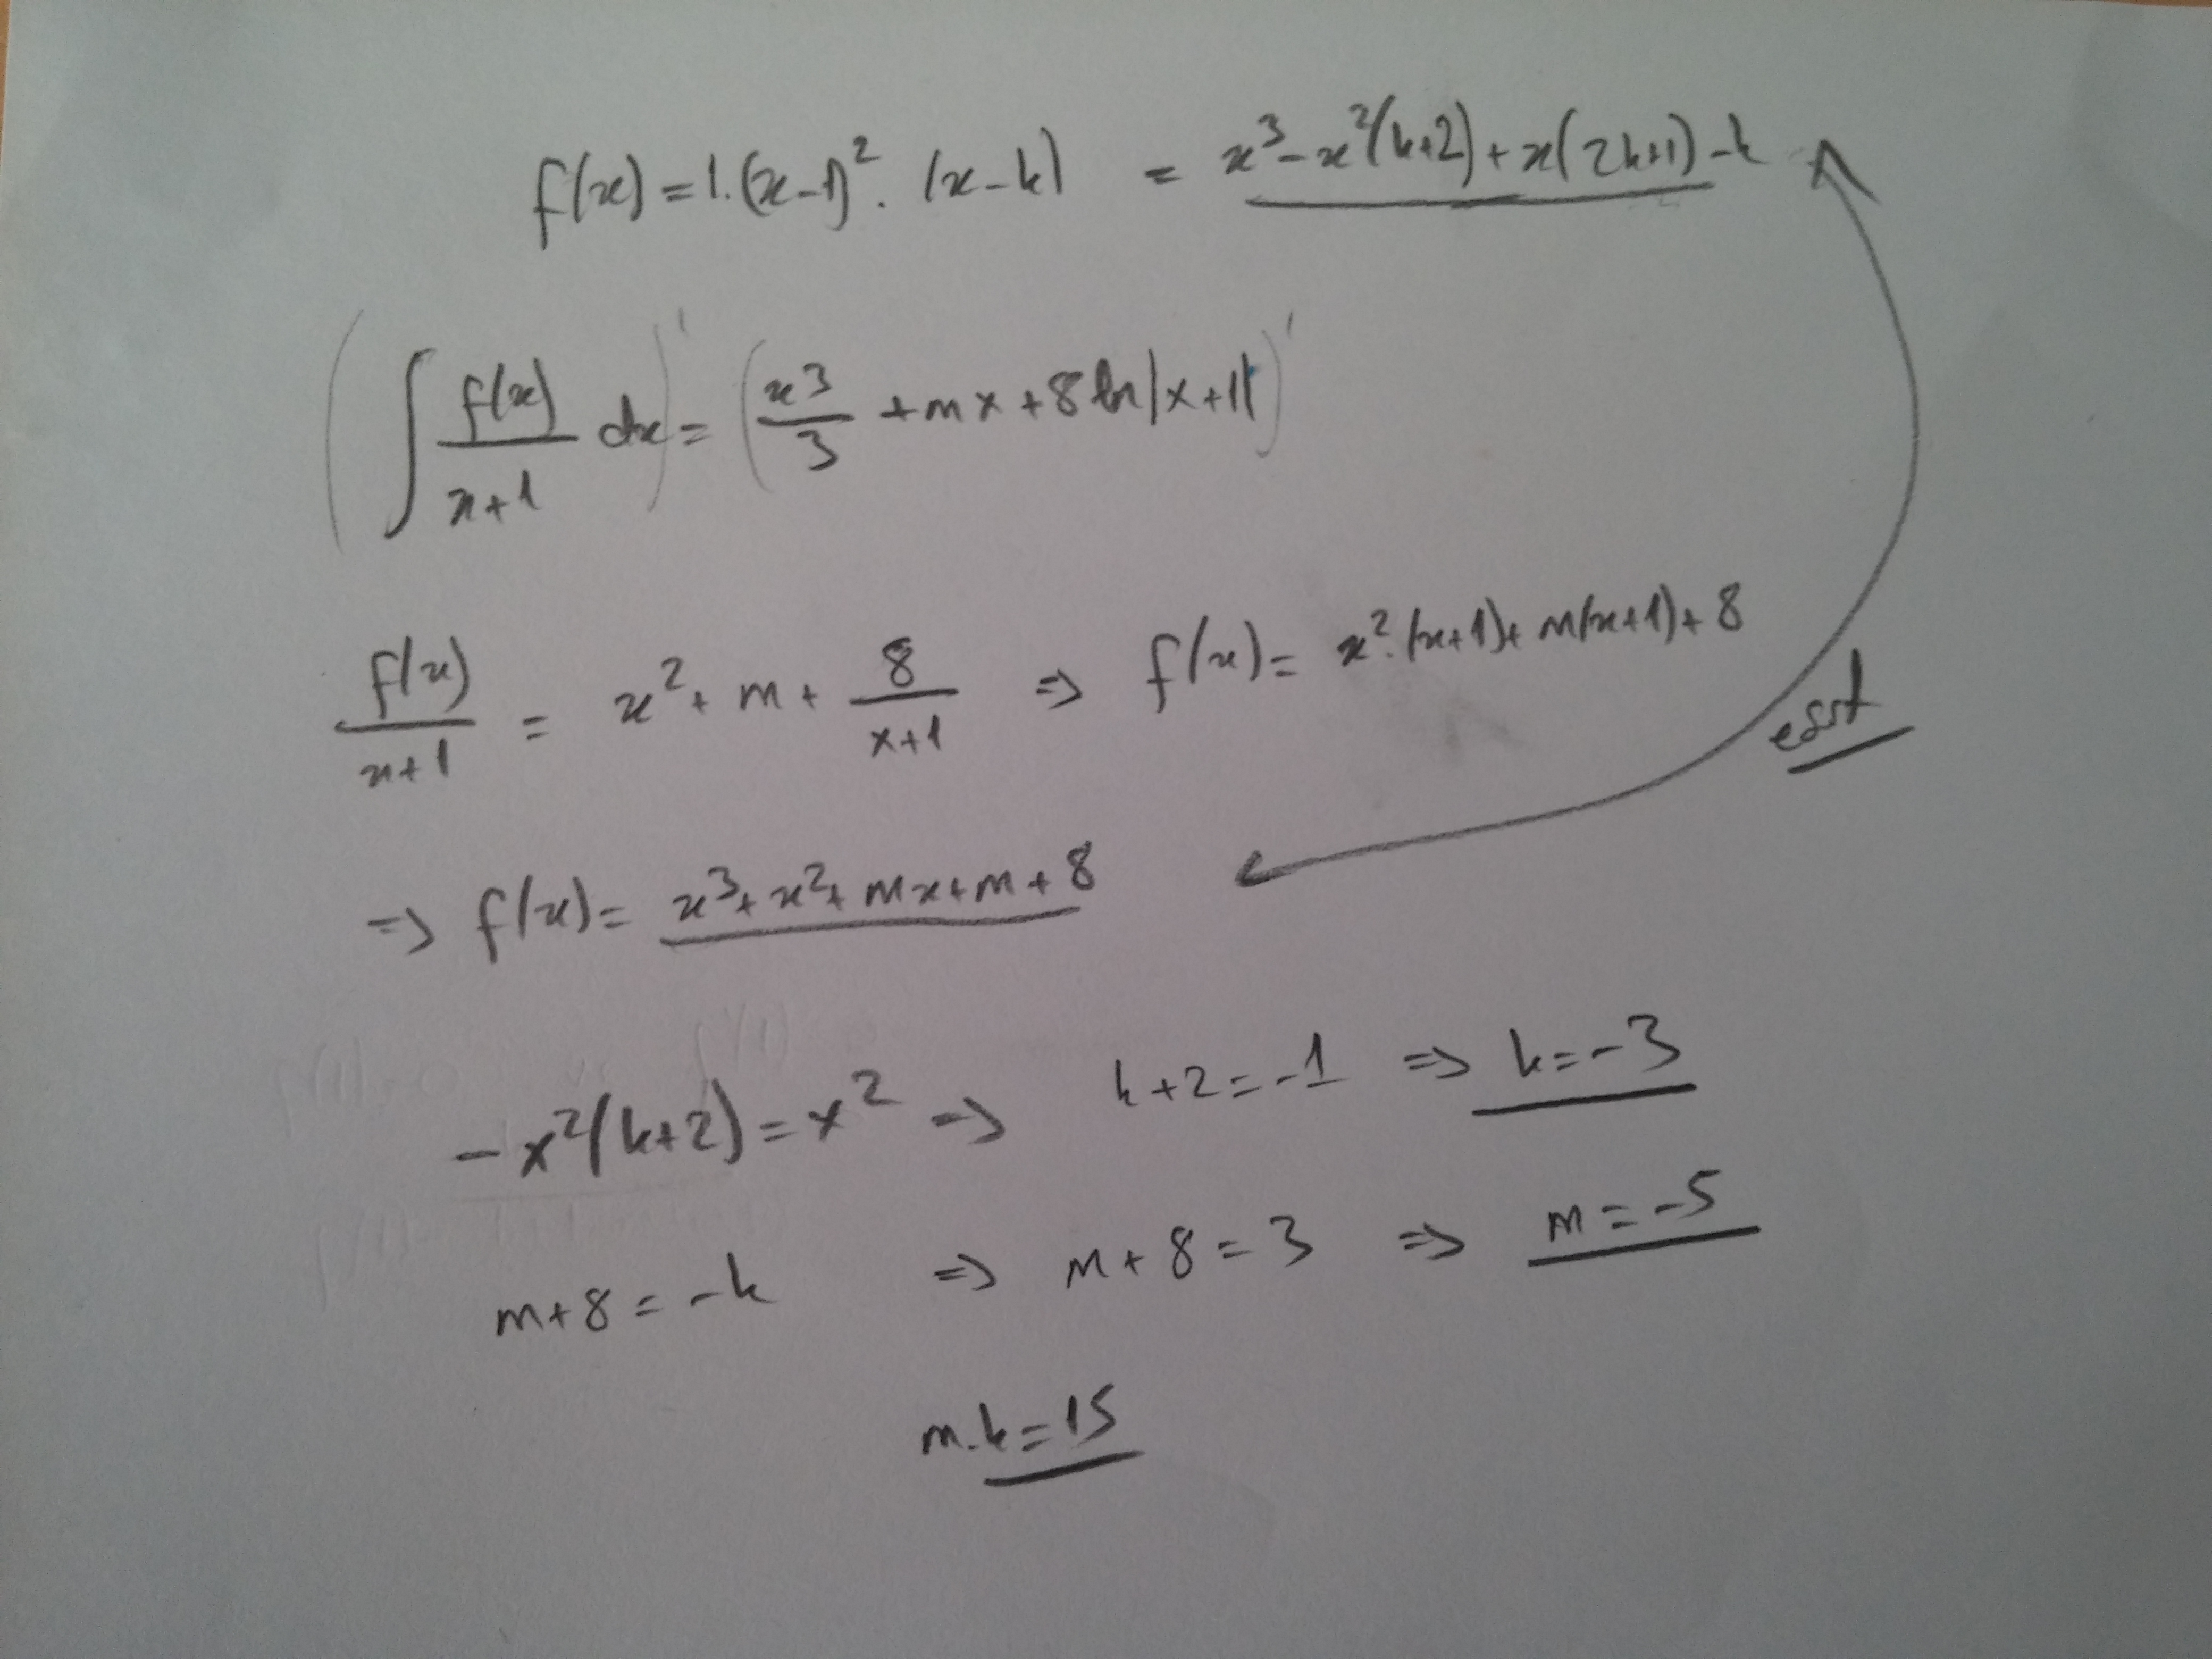 f(x) = 1.(x-1)². (x-k) = x³-x²(k+2)+x(2k+1)-k
(∫ f(x)/(x+1) dx)' = (x³/3 + mx + 8 ln|x+1|)'
f(x)/(x+1) = x² + m + 8/(x+1) ⇒ f(x) = x².(x+1)+m(x+1)+8
eşit
⇒ f(x) = x³+x²+mx+m+8
-x²(k+2) = x² ⇒ k+2=-1 ⇒ k=-3
m+8=-k ⇒ m+8=3 ⇒ m=-5
m.k=15